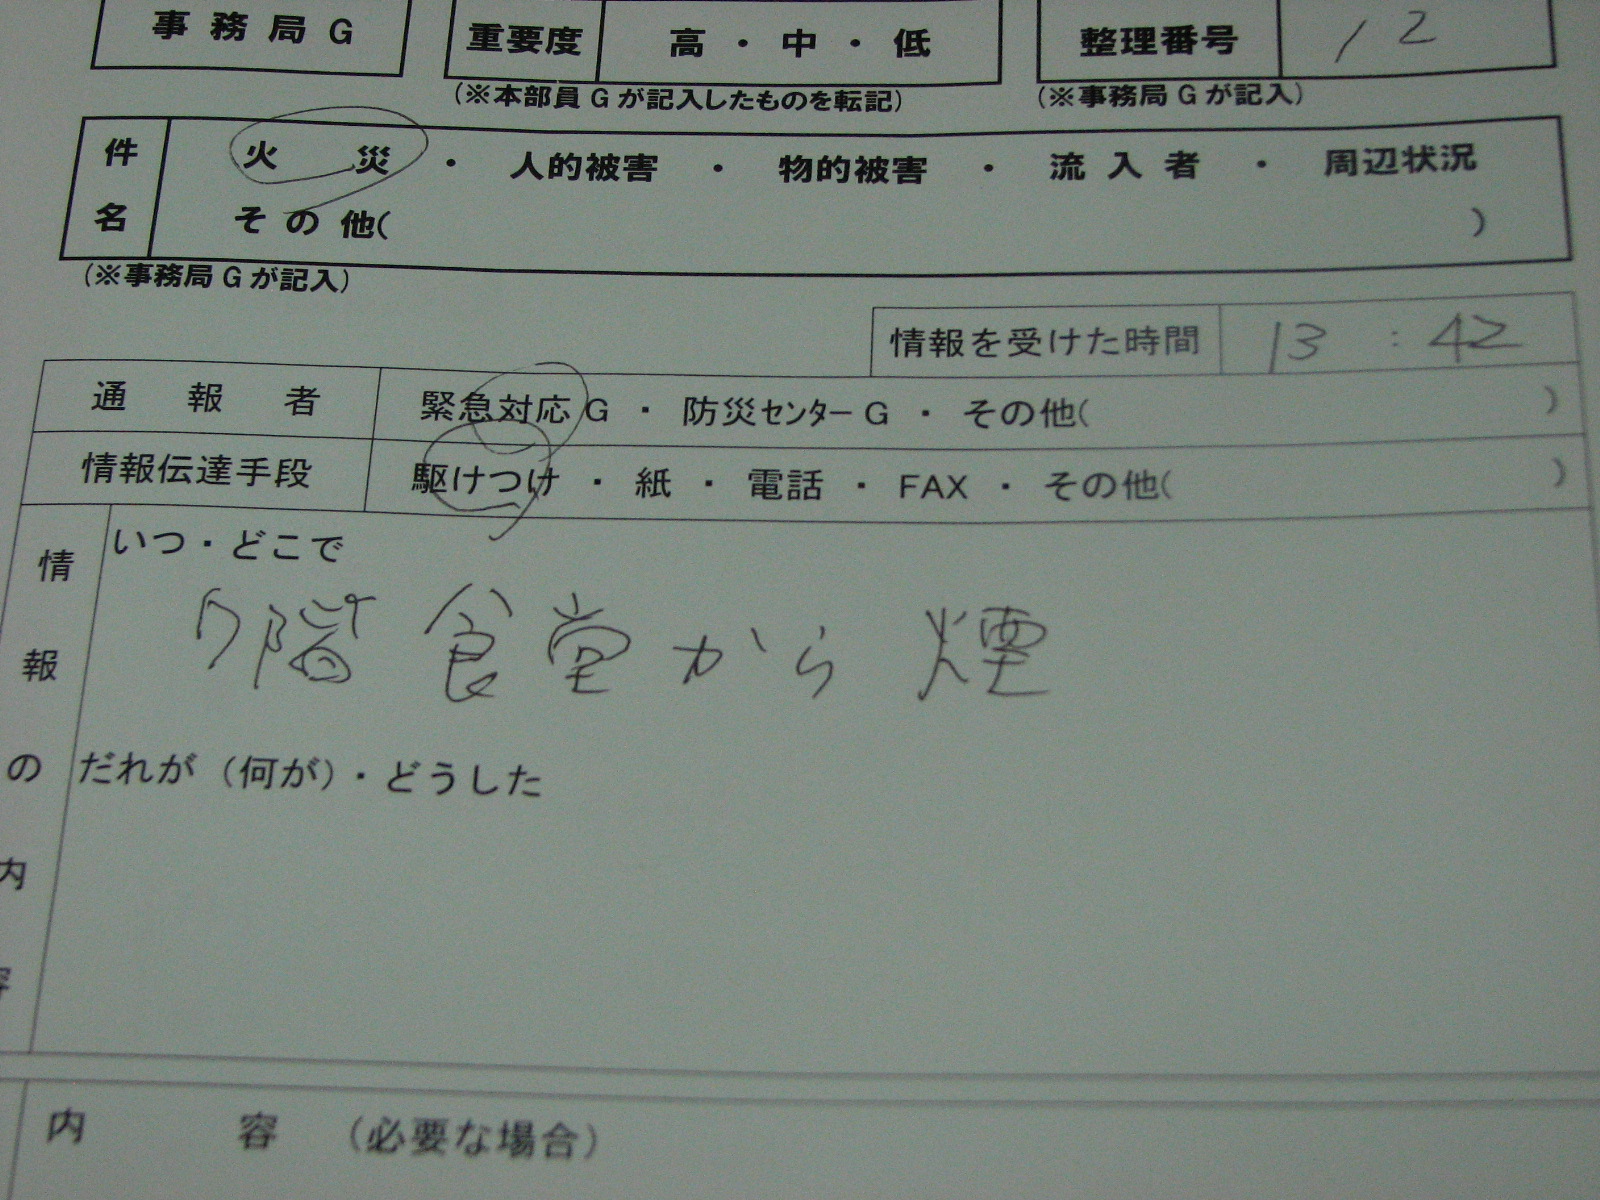 事務局G 重要度 高・中・低 整理番号 12
(※本部員Gが記入したものを転記) (※事務局Gが記入)
件名 火災・人的被害・物的被害・流入者・周辺状況
その他( )
(※事務局Gが記入)
情報を受けた時間 13:42
通報者 緊急対応G・防災センターG・その他( )
情報伝達手段 駆けつけ・紙・電話・FAX・その他( )
情報の内容
いつ・どこで
7階 食堂から 煙
だれが(何が)・どうした
内容 (必要な場合)